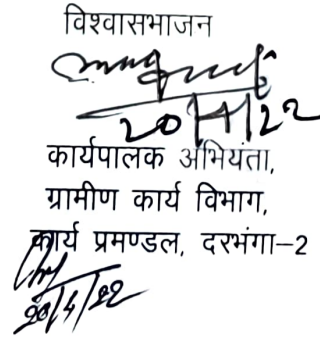 विश्वासभाजन
20/4/22
कार्यपालक अभियंता,
ग्रामीण कार्य विभाग,
कार्य प्रमण्डल, दरभंगा-2
20/4/22